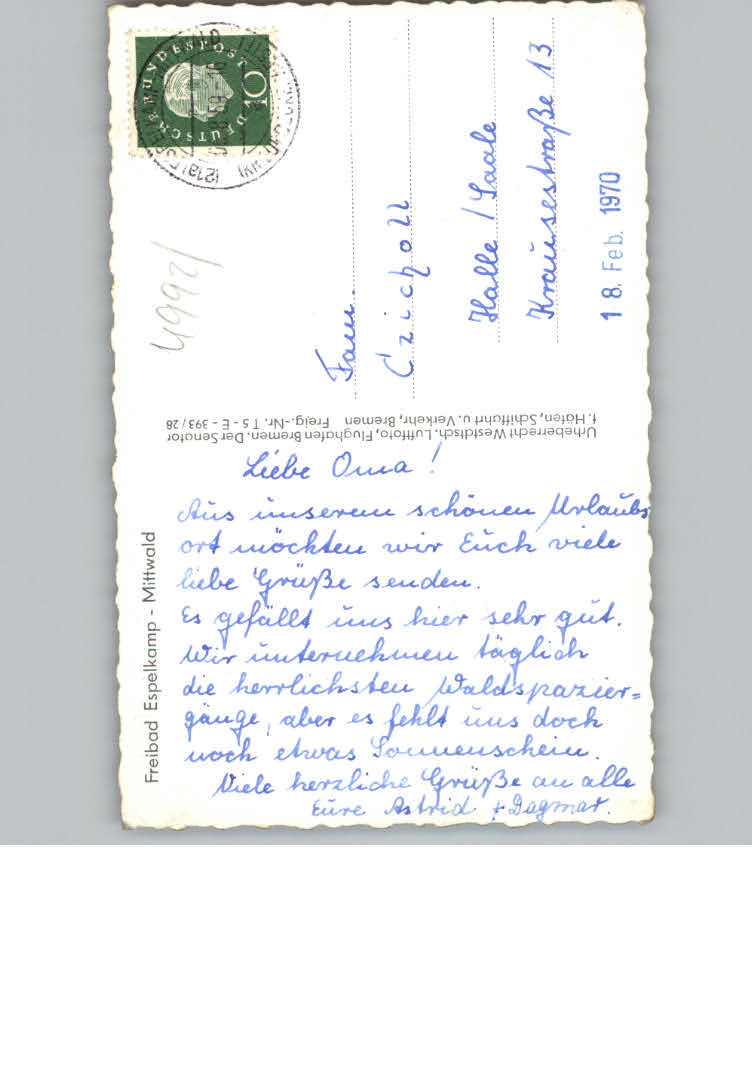 Freibad Espelkamp - Mittwald
Liebe Oma!
Aus unserem schönen Urlaubs
ort möchten wir Euch viele
liebe Grüße senden.
Es gefällt uns hier sehr gut.
Wir unternehmen täglich
die herrlichsten Waldspazier=
gänge, aber es fehlt uns doch
noch etwas Sonnenschein.
Viele herzliche Grüße an alle
Eure Astrid + Dagmar.
Urheberrecht Westdtsch. Luftfoto, Flughafen Bremen. Der Senator
f. Häfen, Schiffahrt u. Verkehr, Bremen Freig.-Nr. T 5 - E - 393 / 28
DEUTSCHE BUNDESPOST
10
(21a)
Fam.
Czicholl
Halle / Saale
Krausestraße 13
18. Feb. 1970
4992/